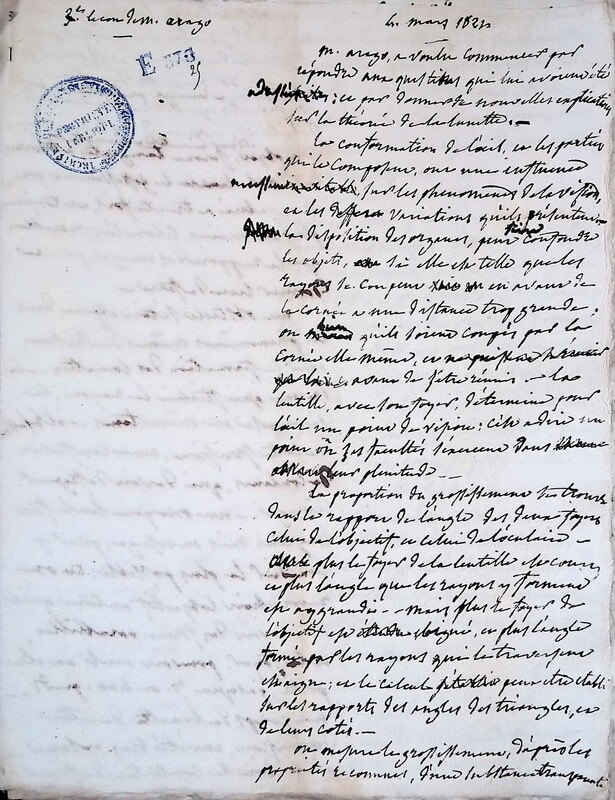 3.e lecon de m. arago
4. mars 1821
E 378
25
m. arago, a voulu commencer par
répondre aux questions qui lui avoient été
; et par donner de nouvelles explications
sur la théorie de la lunette. —
la conformation de l'œil, et les parties
qui le composent, ont une influence
sur les phenomenes de la vision,
et les variations qu'ils presentent.
la disposition des organes, peut confondre
les objets, si elle est telle que les
rayons se coupent en avant de
la cornée a une distance trop grande;
ou qu'ils soient coupés par la
cornée elle même, et
avant de s'être réunis. — la
lentille, avec son foyer, determine pour
l'œil un point de vision: c'est a dire un
point où ses facultés s'exercent dans
leur plenitude. —
la proportion du grossissement se trouve
dans le rapport de l'angle des deux foyers
celui de l'objectif, et celui de l'oculaire —
plus le foyer de la lentille est court
et plus l'angle que les rayons y forment
est aggrandi. — mais plus le foyer de
l'objectif est eloigné, et plus l'angle
formé par les rayons qui le traversent
; et le calcul peut être établi
sur les rapports des angles des triangles, et
de leurs cotés. —
on mesure le grossissement, d'après les
propriétés reconnues, d'une substance transparente